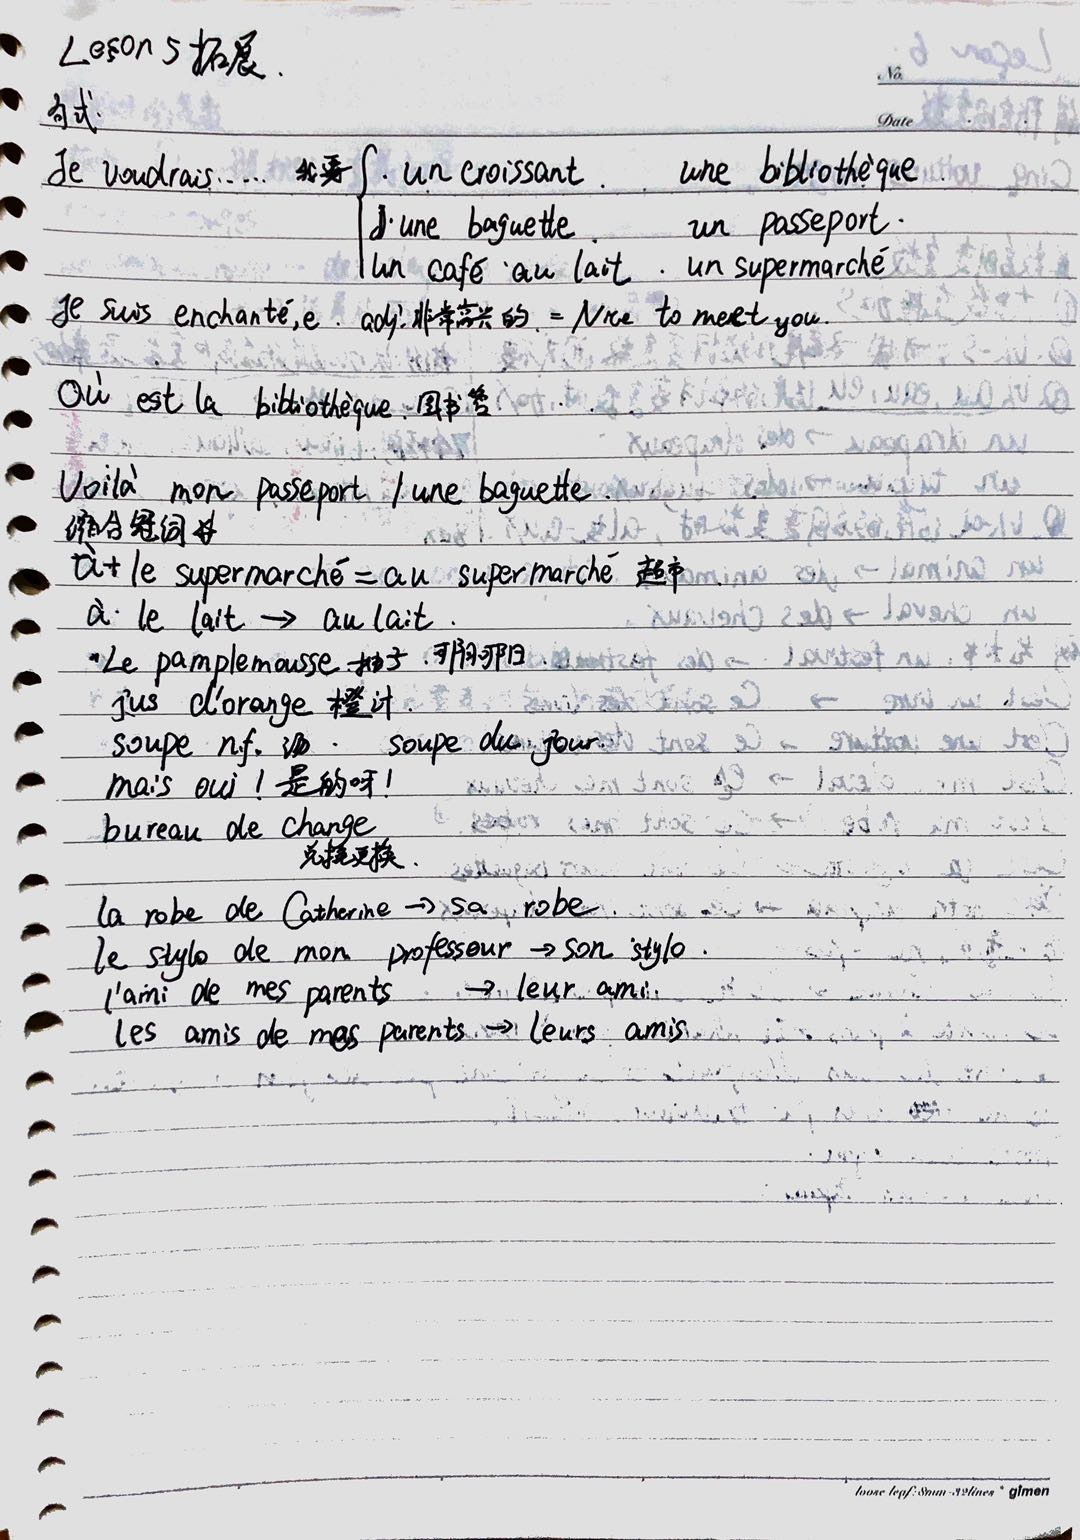 Leçon 5 拓展.
No.
Date
句式:
Je voudrais...... 我要 { un croissant. une bibliothèque.
une baguette. un passeport.
un café au lait. un supermarché
Je suis enchanté,e. adj. 非常高兴的. = Nice to meet you.
Où est la bibliothèque. 图书馆
Voilà mon passeport / une baguette.
缩合冠词
à + le supermarché = au supermarché 超市
à le lait → au lait.
Le pamplemousse 柚子.
jus d'orange 橙汁.
soupe n.f. 汤. soupe du jour.
mais oui! 是的呀!
bureau de change
兑换更换.
la robe de Catherine → sa robe.
le stylo de mon professeur → son stylo.
l'ami de mes parents → leur ami.
les amis de mes parents → leurs amis.
loose leaf: 8mm-32lines * glmen